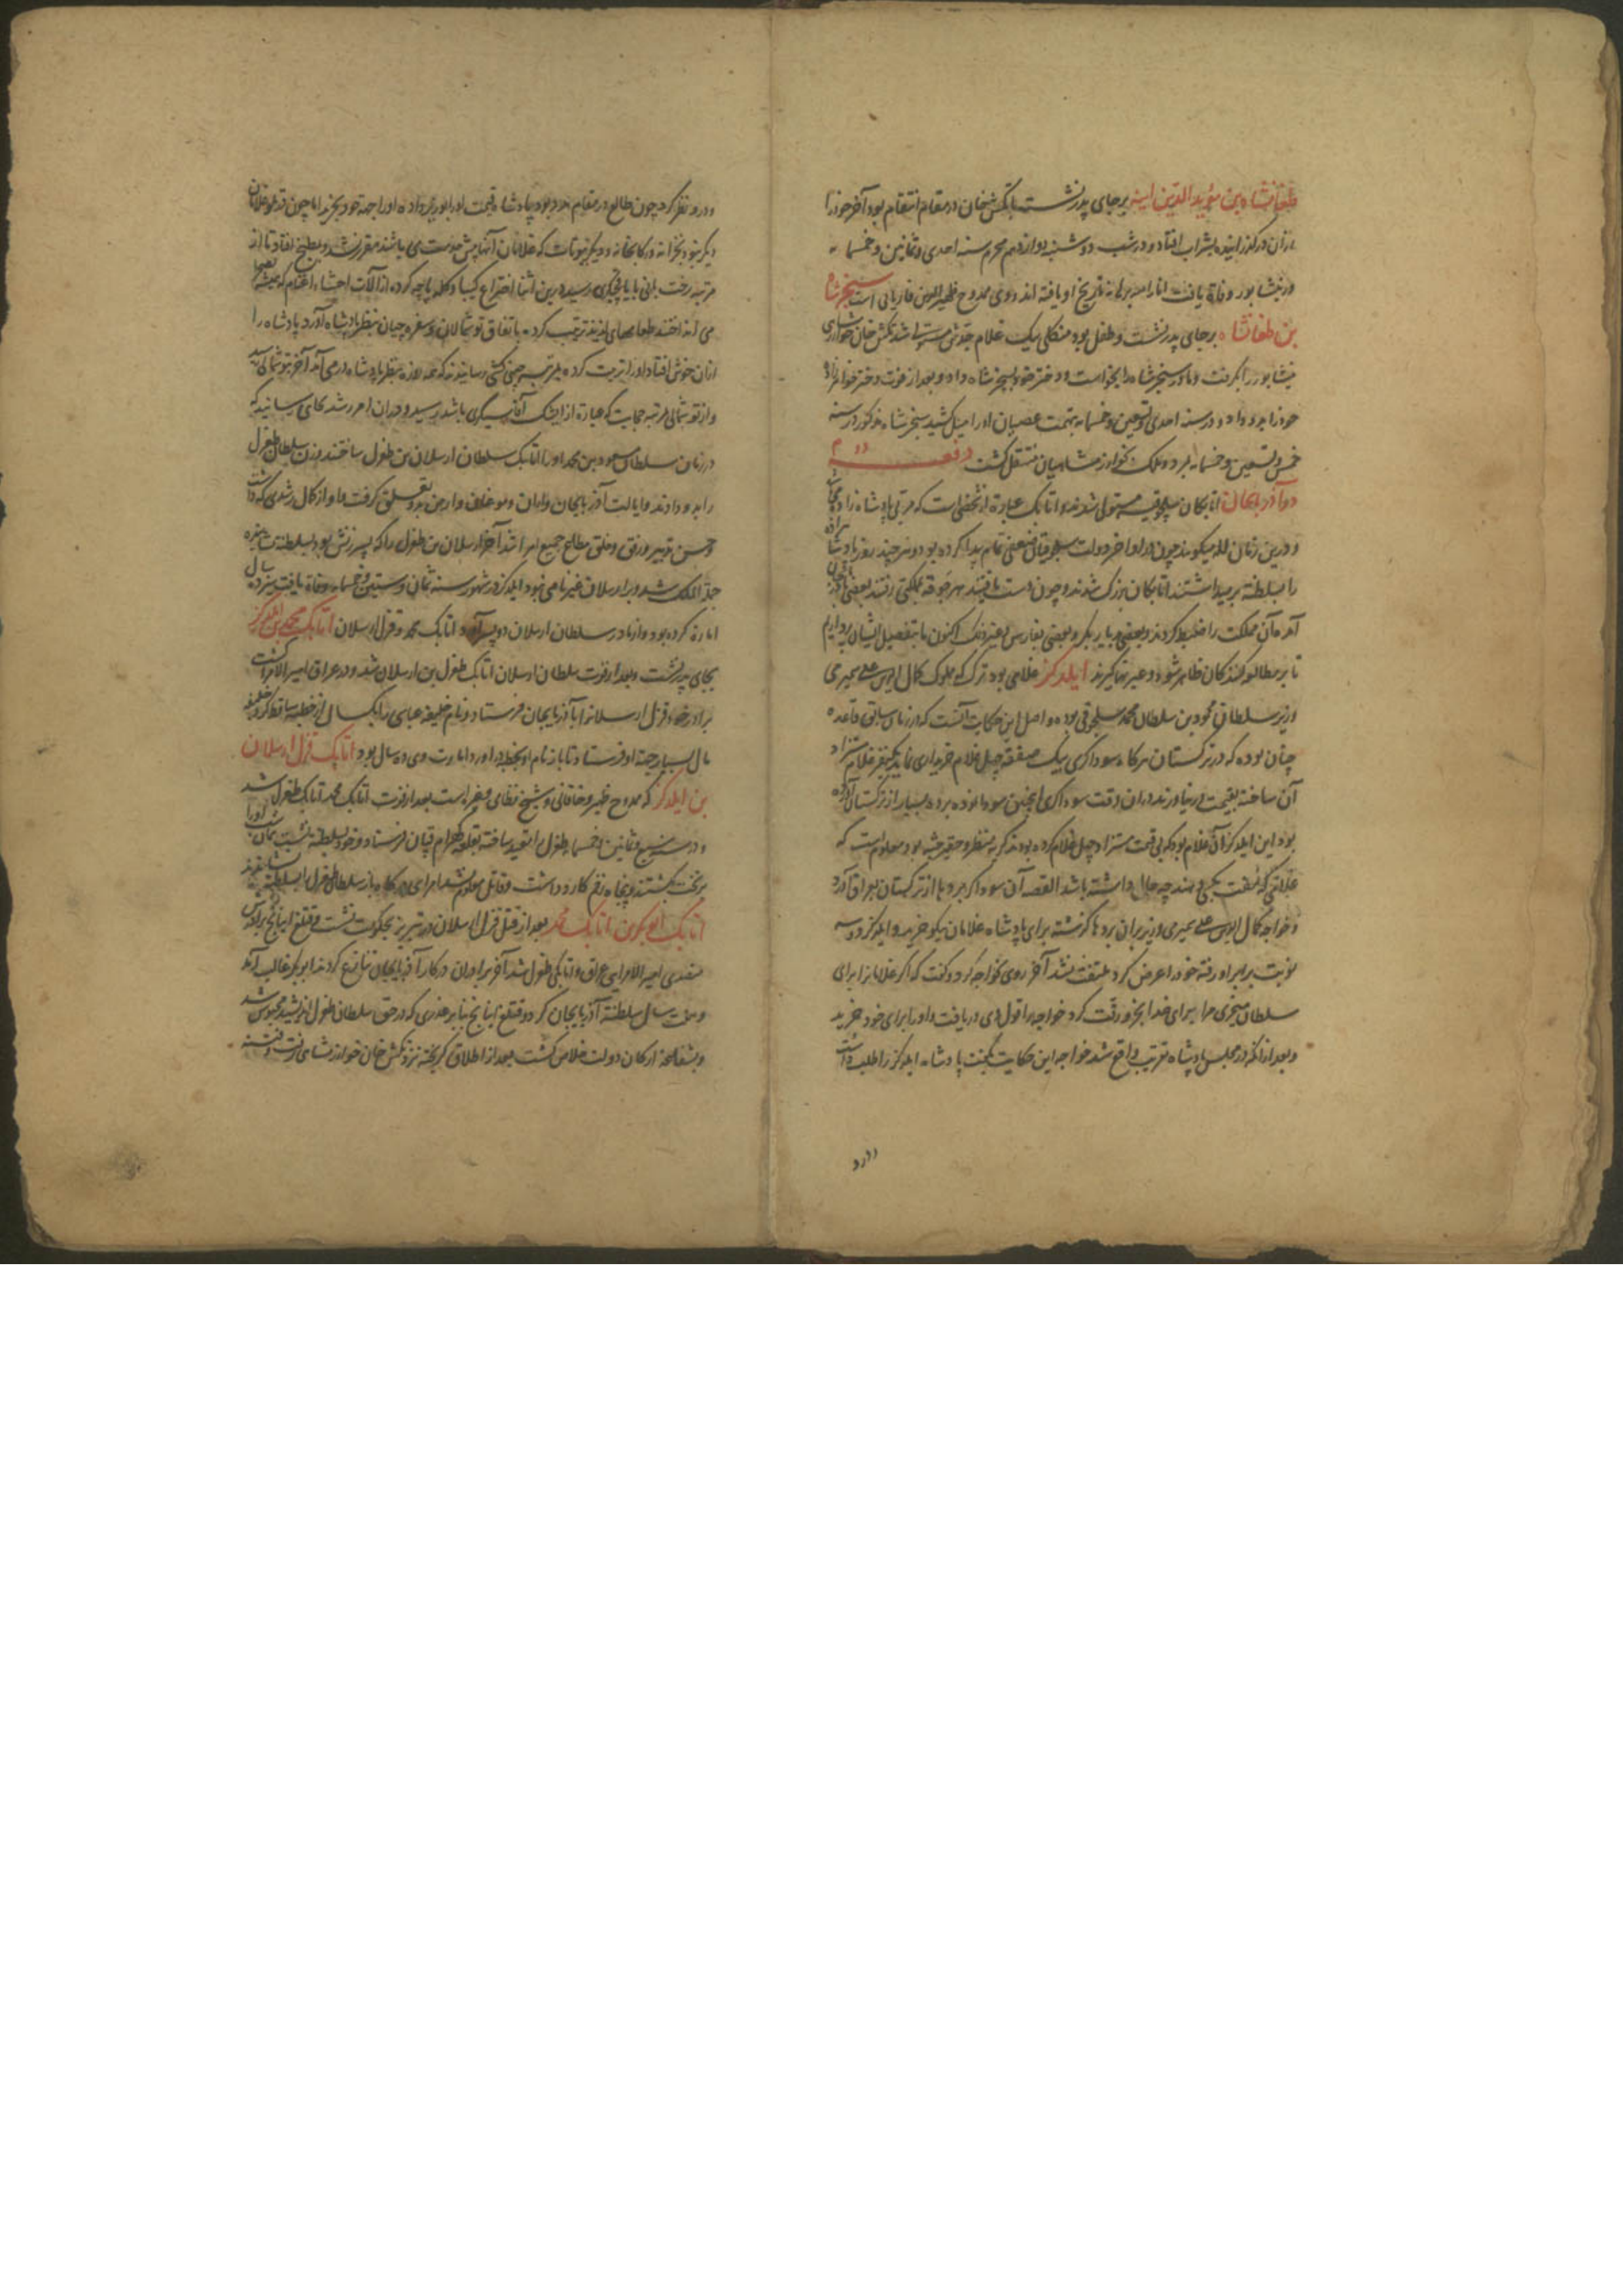 طغانشاه بن مؤید الدین ایبه بر جای پدر نشست با تکش خان در مقام انتقام بود آخر خود را
از آن در گذرانیده بشراب افتاد و در شب دوشنبه دوازدهم محرم سنه احدی و ثمانین و خمسمایه
در نیشابور وفاة یافت تاریخ او یافته اند و وی ممدوح ظهیر الدین فاریابی است سنجر شاه
بن طغانشاه بر جای پدر نشست و طفل بود منکلی بیک غلام جدش شد تکش خان خوارزم
نیشابور را بگرفت و مادر سنجر شاه را بخواست و دختر خود بسنجر شاه داد و بعد از فوت دختر خواهر
خود را بدو داد و در سنه احدی و تسعین و خمسمایه بتهمت عصیان او را میل کشید سنجر شاه مذکور در سنه
خمس و تسعین و خمسمایه بمرد و ملک بخوارزمشاهیان منتقل گشت
در آذربایجان اتابکان سلجوقیه مستولی شدند و اتابک عبارة از شخصی است که مربی پادشاه زاده
و درین زمان لله میگویند چون در اواخر دولت سلجوقیان ضعفی تمام پیدا کرده بود و هر چند روز پادشا
را بسلطنة بر میداشتند اتابکان بزرگ شدند و چون دست یافتند هر جوقه بمملکتی رفتند بعضی
آمده آن مملکت را ضبط کردند و بعضی بدیاربکر و بعضی بفارس و غیر ذلک اکنون ما بتفصیل ایشان پردازیم
تا بر مطالعه کنندگان ظاهر شود و عبرتها گیرند ایلدکز غلامی بود ترک که مملوک کمال علی سمیرمی
وزیر سلطان محمود بن سلطان محمد سلجوقی بوده و اصل این حکایت آنست که در زمان سابق قاعده
چنان بوده که در ترکستان هر گاه سوداگری بیک صفقه چهل غلام خریداری نماید یکنفر غلام
آن ساخته بقیمت در نیاورند در آن وقت سوداگری اینچنین سودا نموده برده بسیار از ترکستان آورده
بود این ایلدکز آن غلام بود که بی قیمت ستزاد چهل غلام کرده بودند کریه منظر و حقیر جثه بود معلوم است که
غلامی که بمفت بکسی دهند چه حال داشته باشد القصه آن سوداگر بردها از ترکستان بعراق آورد
و خواجه کمال علی سمیری وزیر بر آن بردها گذشته برای پادشاه غلامان نیکو خرید و ایلدکز دو سه
نوبت برابر او رفته خود را عرض کرد ملتفت نشد آخر روی بخواجه کرد و گفت که اگر غلامان از برای
سلطان میخری مرا برای خدا بخر و رقت کرد خواجه را قول وی دریافت و او را برای خود خرید
و بعد از آنکه در مجلس پادشاه تقریب واقع شد خواجه این حکایت بگفت پادشاه ایلدکز را طلب داشت
در او نظر کرد چون طالع در مقام مدد بود پادشاه قیمت او را بوزیر داده او را جهة خود بخرید اما چون قد غلامان
دیگر نبود بخزانه و رکابخانه و دیگر بیوتات که غلامان آنها پیش خدمت می باشند مقرر نشد و بمطبخ افتاد تا از
مرتبه رخت بانی رسید درین اثنا اختراع کیپا و کله پاچه کرده از آلات احشاء اغنام که همیشه
می انداختند طعامهای لذیذ ترتیب کرد و باتفاق توشمالان و سفره چیان بنظر پادشاه آورد پادشاه را
از آن خوش افتاد او را تربیت کرده بمرتبه رسانیدند که همه روزه بنظر پادشاه در می آمد آخر بتوشمالی رسید
و از توشمالی بمرتبه حجابت که عبارة از ایشک آقاسیگری باشد رسید و در آن امر رشد بجای رسانید که
در زمان سلطان مسعود بن محمد او را اتابک سلطان ارسلان بن طغرل ساختند و زن سلطان طغرل
را بدو دادند و ایالت آذربایجان و اران و موغان و ارمن بدو تعلق گرفت و او از کمال رشدی که داشت
و حسن تدبیر و رفق و خلق مطاع جمیع امرا شد آخر ارسلان بن طغرل را که پسر زنش بود بسلطنة نشانده
جملة الملک شد و بر ارسلان غیر نامی نبود ایلدکز در شهور سنه ثمان و ستین و خمسمایه وفاة یافت سیزده سال
امارة کرده بود و از مادر سلطان ارسلان دو پسر آورد اتابک محمد و قزل ارسلان اتابک محمد بن ایلدکز
بجای پدر نشست و بعد از فوت سلطان ارسلان اتابک طغرل بن ارسلان شد و در عراق امیر الامرا گشت
برادر خود قزل ارسلان را بآذربایجان فرستاد و نام خلیفه عباسی را یکسال از خطبه ساقط کرد خلیفه
مال بسیار جهة او فرستاد تا باز نام او بخطبه در آورد امارت وی ده سال بود اتابک قزل ارسلان
بن ایلدکز که ممدوح ظهیر و خاقانی و شیخ نظامی و غیره است بعد از فوت اتابک محمد اتابک طغرل شد
و در سنه سبع و ثمانین و خمسمایه طغرل را مقید ساخته بقلعه فرستاد و خود بسلطنة نشست او را
بر تخت بکشتند و پنجاه زخم کارد داشت و قاتل معلوم نشد امرای باز سلطان طغرل را بسلطنة نشاندند
اتابک ابوبکر بن اتابک محمد بعد از قتل قزل ارسلان در تبریز بحکومت نشست و قتلغ اینانج برادرش
متصدی امیر الامرایی عراق و اتابکی طغرل شد آخر برادران در کار آذربایجان تنازع کردند ابوبکر غالب آمد
و بیست سال سلطنة آذربایجان کرد و قتلغ اینانج بنا بر غدری که در حق سلطان طغرل اندیشید محبوس شد
و بشفاعة ارکان دولت خلاص گشت بعد از اطلاق گریخته نزد تکش خان خوارزمشاهی رفت و فتنه